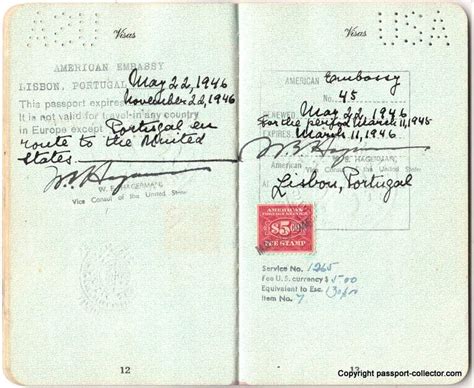 Visas
AMERICAN EMBASSY
LISBON, PORTUGAL May 22, 1946
This passport expires November 22, 1946
It is not valid for travel in any country
in Europe except Portugal en
route to the United
States
W. E. HAGEMANN
Vice Consul of the United State
12
Visas
USA
AMERICAN Embassy
No. 45
RENEWED May 22, 1946
For the period March 11, 1945
EXPIRES March 11, 1946
HAGEMANN
Lisbon, Portugal
AMERICAN
FOREIGN SERVICE
$5.00
FEE STAMP
Service No. 1265
Fee U.S. currency $ 5.00
Equivalent to Esc.
Item No. 7
13
Copyright passport-collector.com